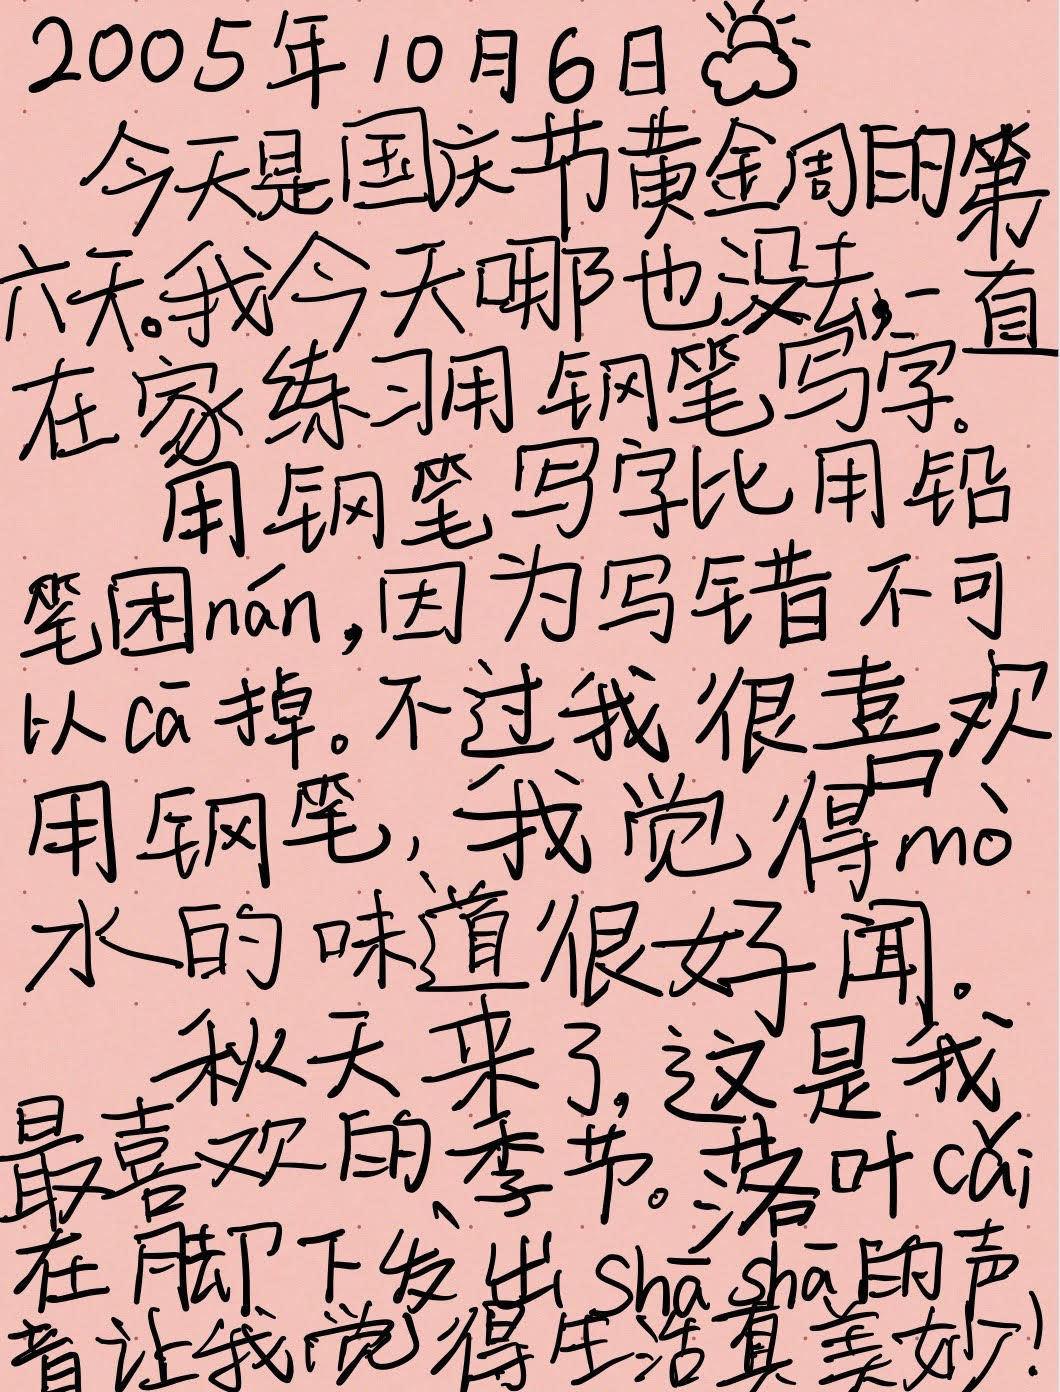 2005年10月6日
今天是国庆节黄金周的第
六天。我今天哪也没去,一直
在家练习用钢笔写字。
用钢笔写字比用铅
笔困nán,因为写错不可
以cā掉。不过我很喜欢
用钢笔,我觉得mò
水的味道很好闻。
秋天来了,这是我
最喜欢的季节。落叶cǎi
在脚下发出shā shā的声
音让我觉得生活真美妙!